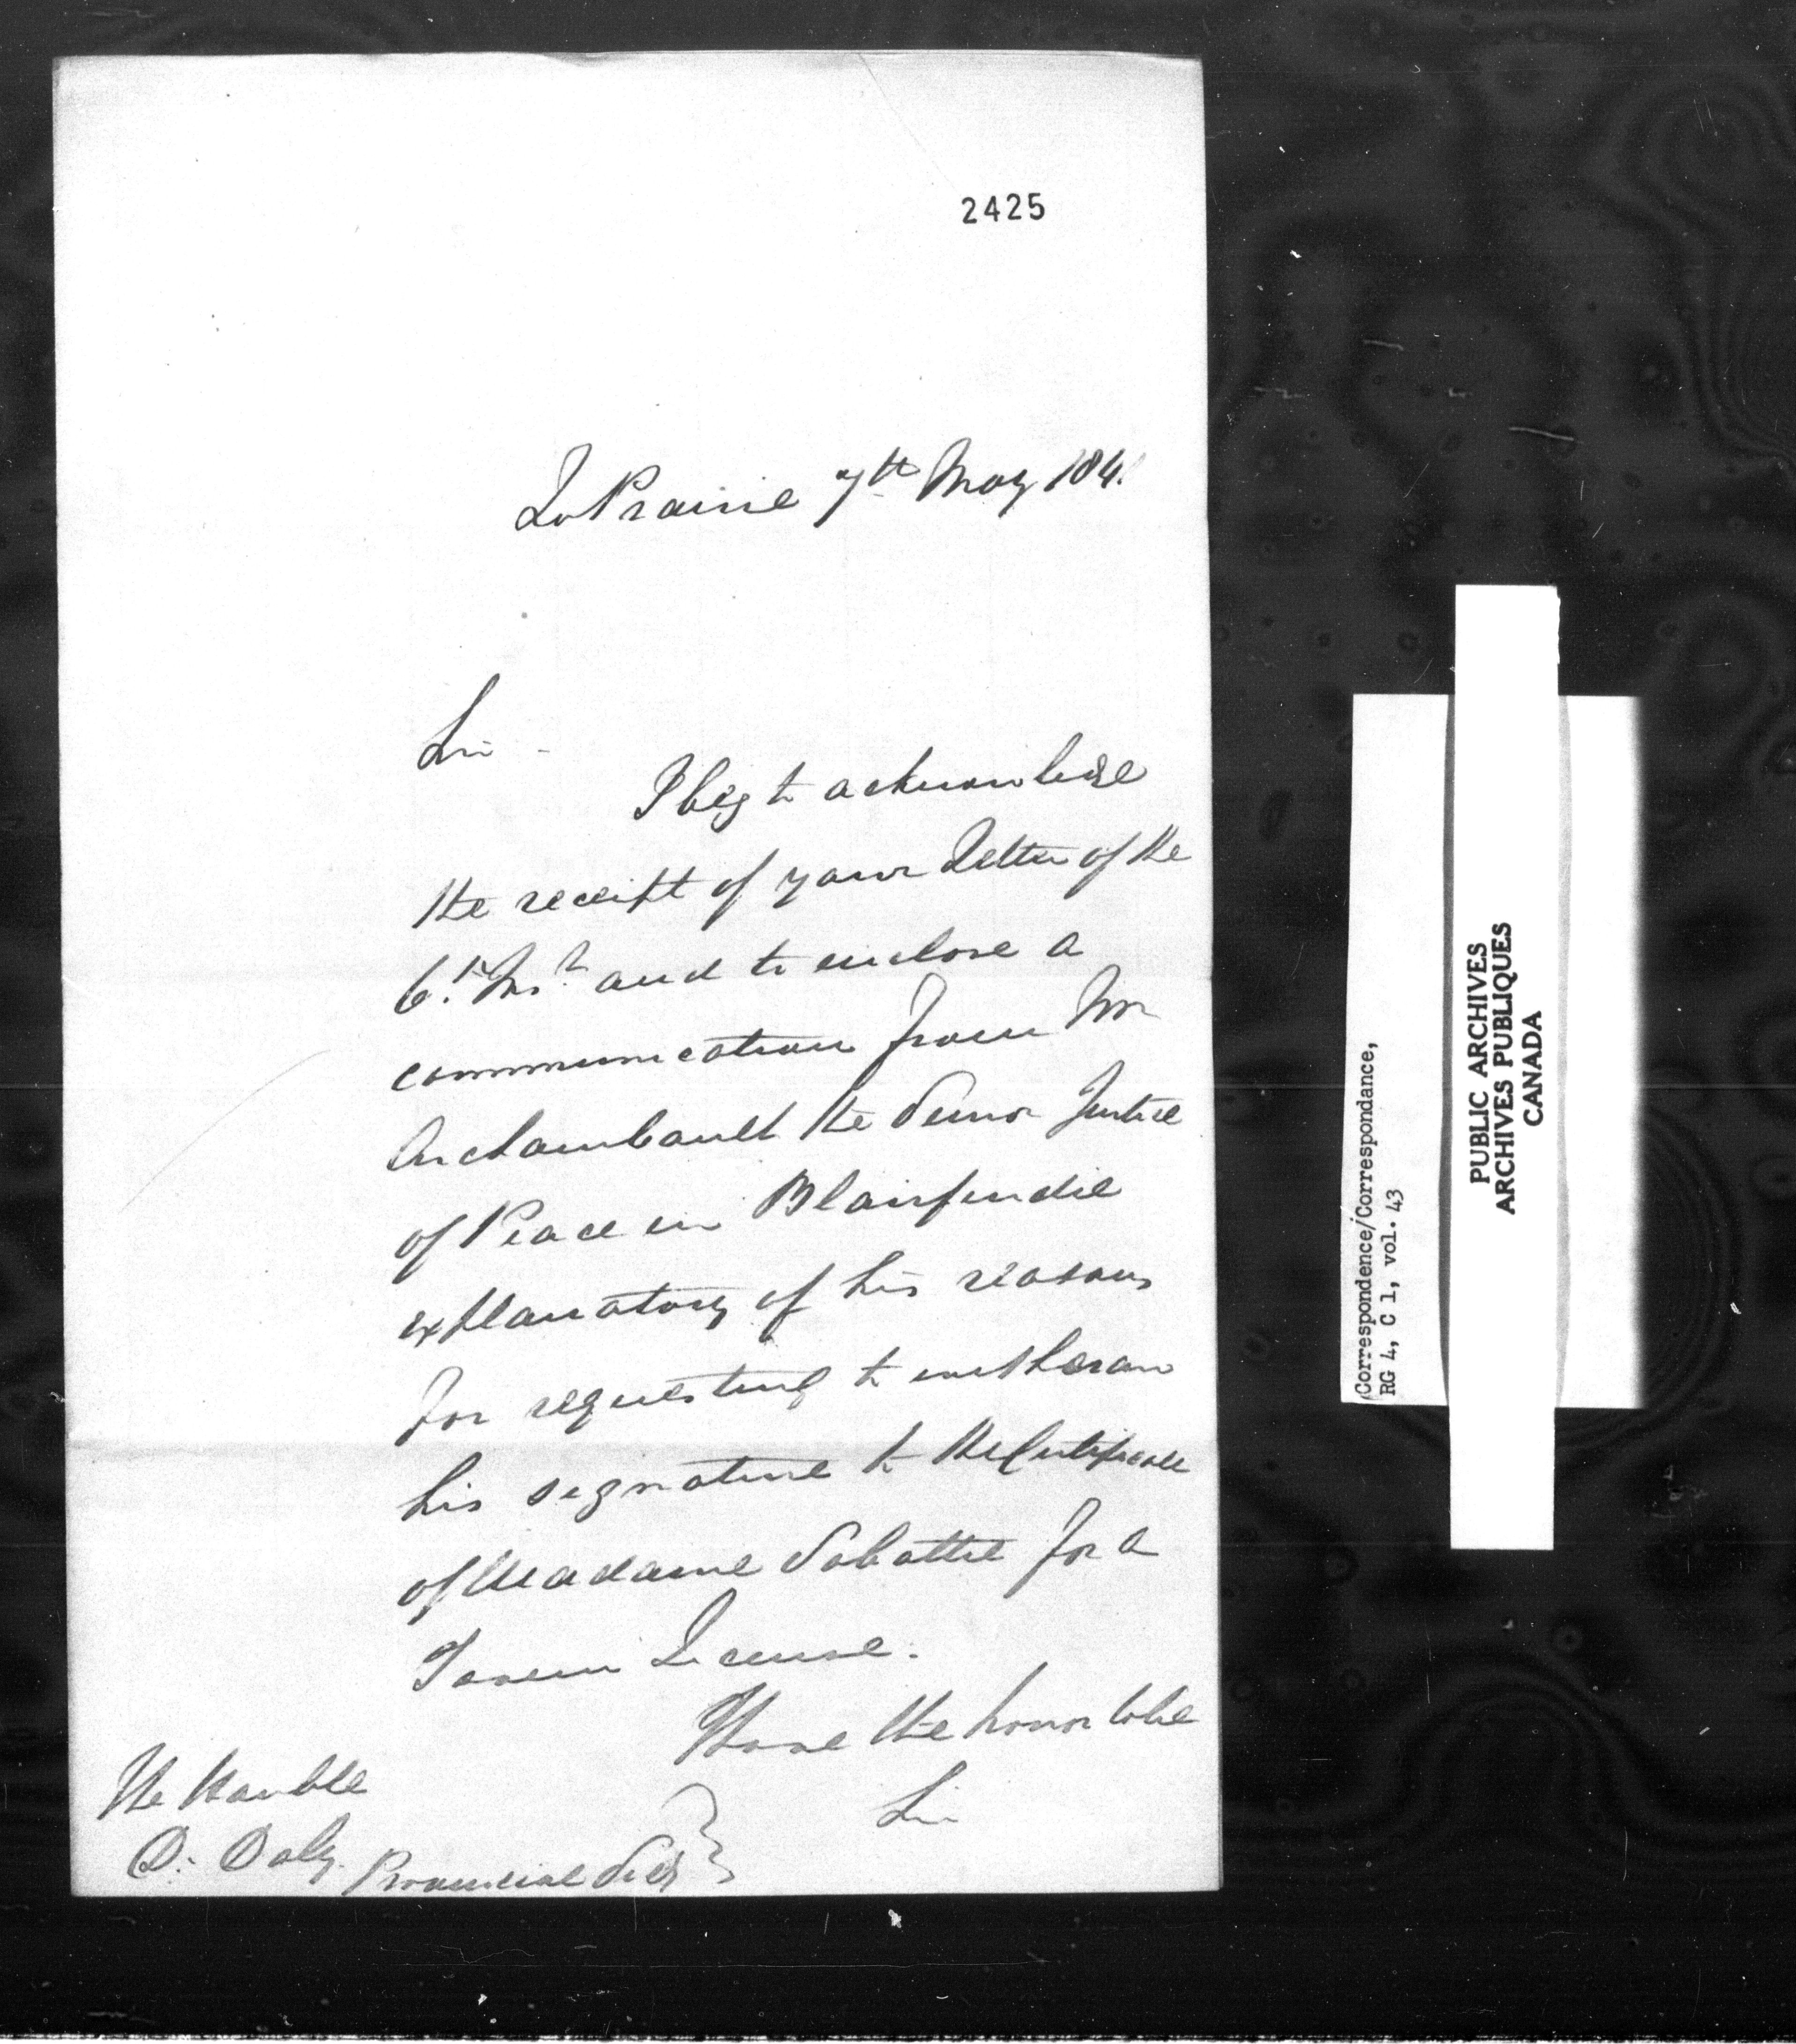 2425
LaPrairie 7th May 184
Sir -
I beg to acknowledge
the receipt of your Letter of the
6th Inst and to enclose a
communication from Mr
Archambault the Senior Justice
of Peace in Blairfindie
explanatory of his reasons
for requesting to withdraw
his signature to the Certificate
of Madame Sabattie for a
Tavern License.
I have the honor to be
Sir
The Honble
D. Daly
Provincial Secy
Correspondence/Correspondance,
RG 4, C 1, vol. 43
PUBLIC ARCHIVES
ARCHIVES PUBLIQUES
CANADA